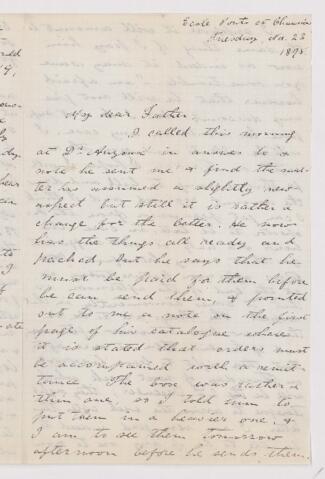 Ecole Ponts et Chaussées
Tuesday No. 23
189
My dear Father
I called this morning
at Dr in answer to a
note he sent me & find the mat-
ter has assumed a slightly new
aspect but still it is rather a
change for the better. He now
has the things all ready and
packed, but he says that he
must be paid for them before
he can send them, & pointed
out to me a note on the first
page of his catalogue where
it is stated that orders must
be accompanied with a remit-
tance. The box was rather a
thin one, so I told him to
put them in a heavier one, &
I am to see them tomorrow
afternoon before he sends them.